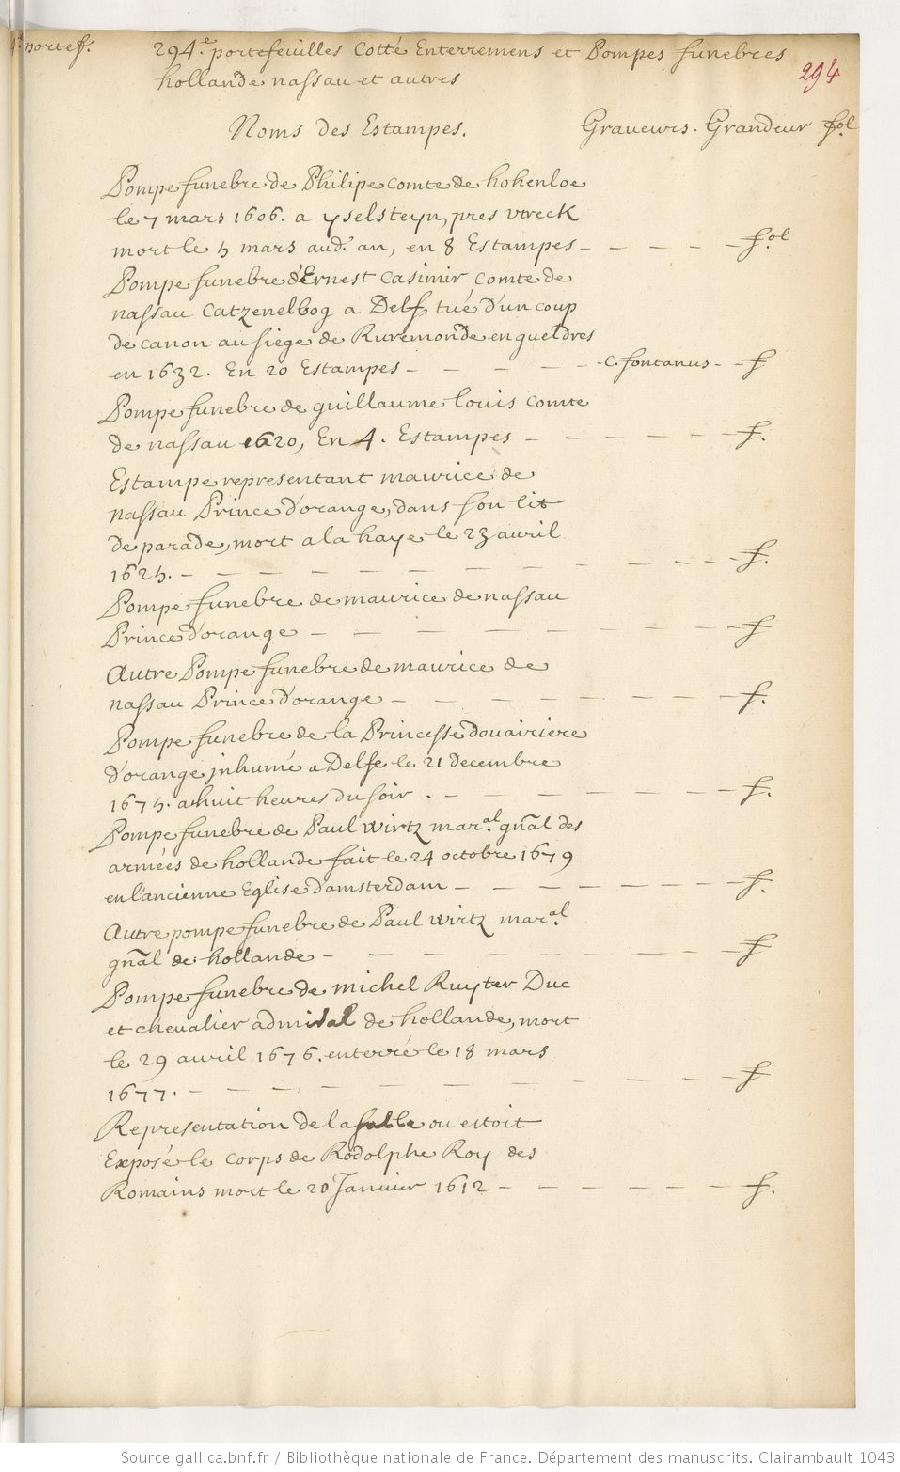 portef.
294.e portefeuilles Cotté Enterremens et Pompes funebres
hollande nassau et autres
294
Noms des Estampes. Graveurs. Grandeur fol
Pompe funebre de Philipe comte de hohenloe
le 7 mars 1606. a yselsteyn, pres utreck
mort le 5 mars aud.t an, en 8 Estampes - - - - fol
Pompe funebre d'Ernest Casimir comte de
nassau Catzenelbog a Delf, tué d'un coup
de canon au siege de Ruremonde en gueldres
en 1632. En 20 Estampes - - - - - c. fontanus - - f
Pompe funebre de guillaume louis comte
de nassau 1620, En 4. Estampes - - - - - f.
Estampe representant maurice de
nassau Prince d'orange, dans son lit
de parade, mort a la haye le 23 avril
1625. - - - - - - - - - - f.
Pompe funebre de maurice de nassau
Prince d'orange - - - - - - - - f
Autre Pompe funebre de maurice de
nassau Prince d'orange - - - - - - - - f.
Pompe funebre de la Princesse douairiere
d'orange inhumé a Delfe le 21 decembre
1675. a huit heures du soir . - - - - - - - f.
Pompe funebre de Paul wirtz mar.al gnãl des
armées de hollande fait le 24 octobre 1679
en l'ancienne Eglise d'amsterdam - - - - - - - f.
Autre pompe funebre de Paul wirtz mar.al
gnãl de hollande - - - - - - - f
Pompe funebre de michel Ruyter Duc
et chevalier admiral de hollande, mort
le 29 avril 1676. enterré le 18 mars
1677. - - - - - - - - - f
Representation de la salle ou estoit
Exposé le corps de Rodolphe Roy des
Romains mort le 20 Janvier 1612 - - - - - - f.
Source gallica.bnf.fr / Bibliothèque nationale de France. Département des manuscrits. Clairambault 1043